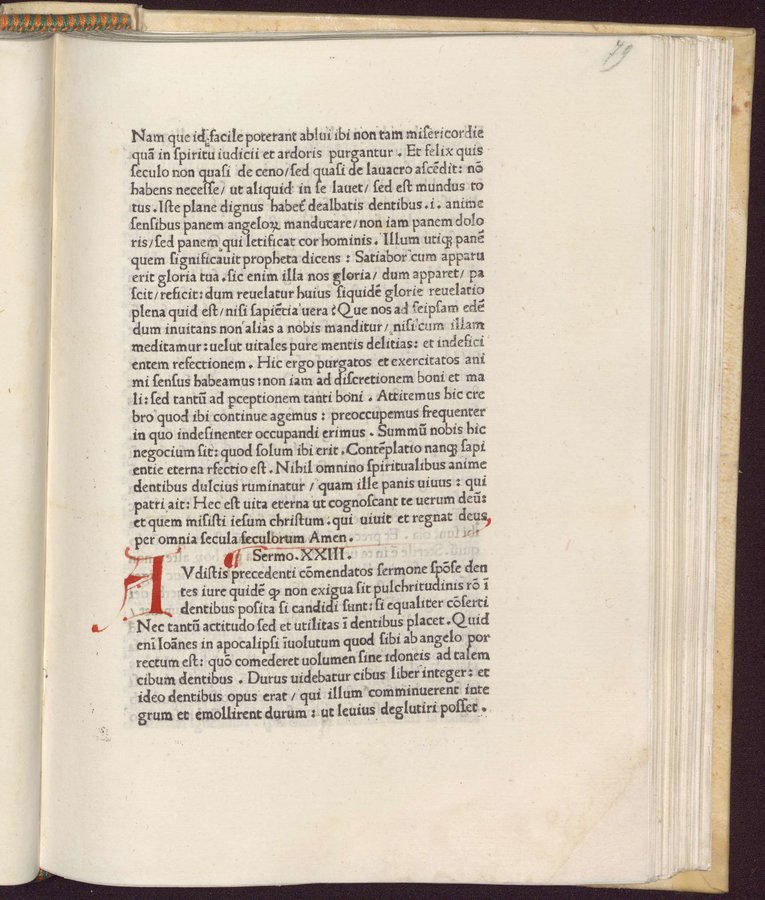 79
Nam que id facile poterant ablui ibi non tam misericordie
quā in spiritu iudicii et ardoris purgantur . Et felix quis
seculo non quasi de ceno/sed quasi de lauacro ascēdit: nō
habens necesse/ ut aliquid in se lauet/ sed est mundus to
tus . Iste plane dignus habeť dealbatis dentibus .i. anime
sensibus panem angeloꝝ manducare/non iam panem dolo
ris/sed panem qui letificat cor hominis . Illum utiqꝫ panē
quem significauit propheta dicens : Satiabor cum apparu
erit gloria tua . sic enim illa nos gloria/ dum apparet/ pa
scit/reficit: dum reuelatur huius siquidē glorie reuelatio
plena quid est/nisi sapiētia uera ? Que nos ad seipsam edē
dum inuitans non alias a nobis manditur/ nisi cum illam
meditamur: uelut uitales pure mentis delitias: et indefici
entem refectionem . Hic ergo purgatos et exercitatos ani
mi sensus habeamus: non iam ad discretionem boni et ma
li: sed tantū ad ꝑceptionem tanti boni . Attitemus hic cre
bro quod ibi continue agemus : preoccupemus frequenter
in quo indesinenter occupandi erimus . Summū nobis hic
negocium sit: quod solum ibi erit . Contēplatio nanqꝫ sapi
entie eterna rfectio est . Nihil omnino spiritualibus anime
dentibus dulcius ruminatur / quam ille panis uiuus : qui
patri ait: Hec est uita eterna ut cognoscant te uerum deū:
et quem misisti iesum christum . qui uiuit et regnat deus
per omnia secula seculorum Amen .
Sermo . XXIII .
AVdistis precedenti cōmendatos sermone spōse den
tes iure quidē ꝙ non exigua sit pulchritudinis rō ī
dentibus posita si candidi sunt: si equaliter cōserti
Nec tantū actitudo sed et utilitas ī dentibus placet . Quid
enī Ioānes in apocalipsi īuolutum quod sibi ab angelo por
rectum est: quō comederet uolumen sine idoneis ad talem
cibum dentibus . Durus uidebatur cibus liber integer: et
ideo dentibus opus erat / qui illum comminuerent inte
grum et emollirent durum : ut leuius deglutiri posset .